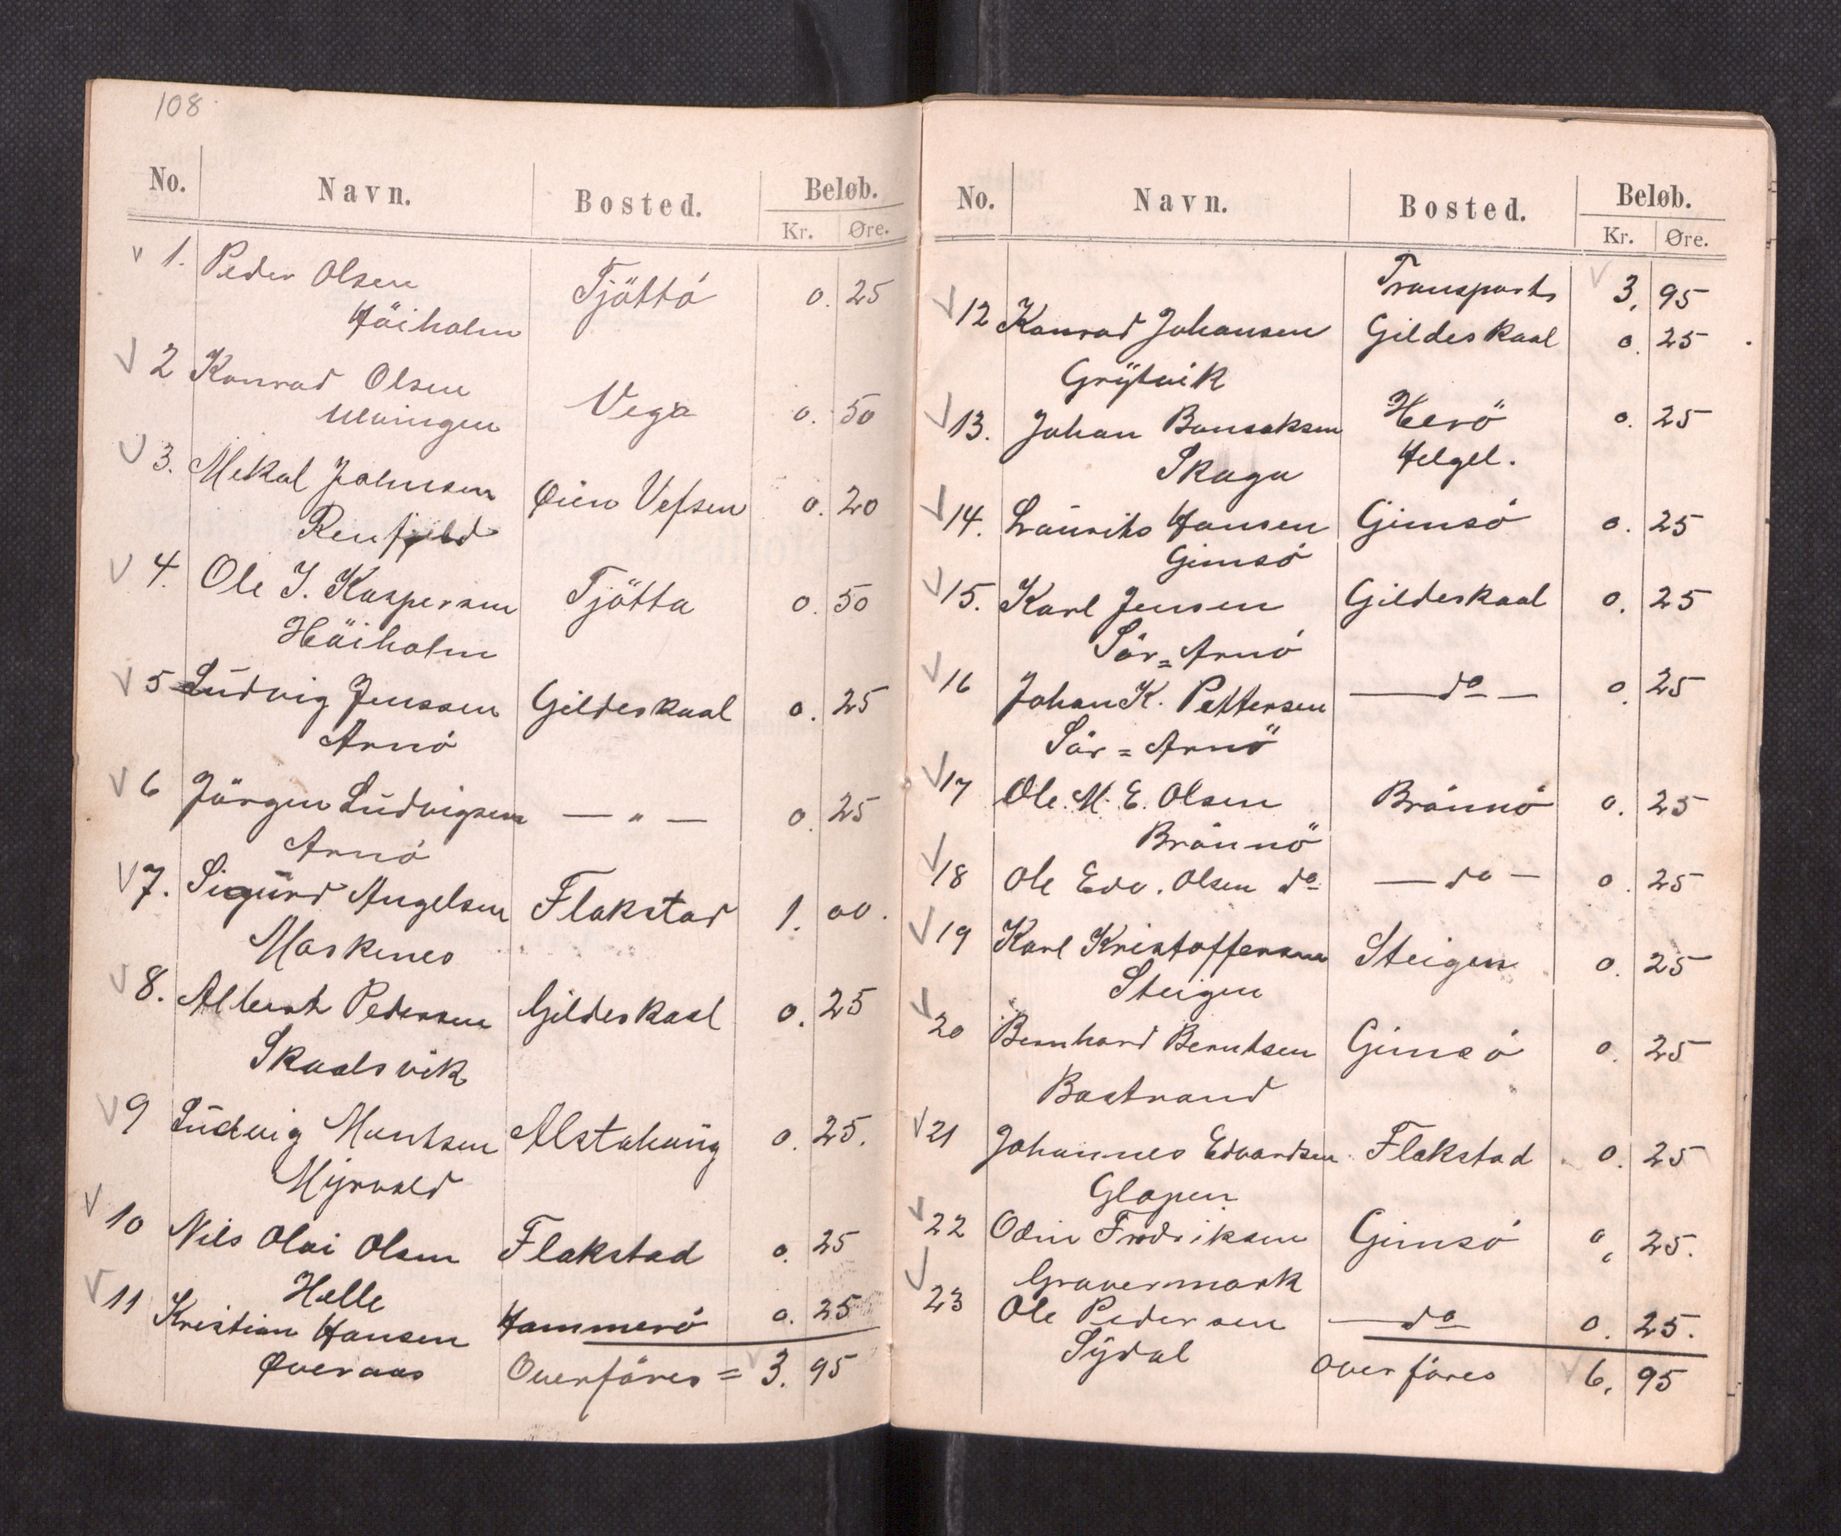 108
No. Navn. Bosted. Beløb.
Kr. Øre.
1. Peder Olsen Tjöttö 0. 25
Höiholm
2 Konrad Olsen Vega 0. 50
Ulvingen
3. Mekal Johnsen Øien Vefsen 0. 20
Renfjeld
4. Ole J. Kaspersen Tjötta 0. 50
Höiholm
5 Ludvig Jenssen Gildeskaal 0. 25
Arnö
6 Jörgen Ludvigsen — " — 0. 25
Arnö
7. Sigurd Angelsen Flakstad 1. 00.
Moskenes
8. Albert Pedersen Gildeskaal 0. 25
Skaalsvik
9 Ludvig Montsen Alstahaug 0. 25.
Myrvold
10 Nils Olai Olsen Flakstad 0. 25
Helle
11 Kristian Hansen Hammerö 0. 25
Øveraas Overföres = 3. 95
No. Navn. Bosted. Beløb.
Kr. Øre.
Transports 3, 95
12 Konrad Johansen Gildeskaal 0. 25
Grytvik
13. Johan Bonsaksen Herö 0. 25
Skaga Helgel.
14. Laurits Hansen Gimsö 0. 25
Gimsö
15. Karl Jensen Gildeskaal 0. 25
Sör=Arnö
16 Johan K. Pettersen — do — 0. 25
Sör=Arnö
17 Ole. M. E. Olsen Brönnö 0. 25
Brönnö
18 Ole Edv. Olsen do — do — 0. 25
19 Karl Kristoffersen Steigen 0. 25
Steigen
20 Bernhard Berntsen Gimsö 0. 25
Bastrand
21 Johannes Edvardsen Flakstad 0. 25
Glapen
22 Odin Fredriksen Gimsö 0, 25.
Gravermark
23 Ole Pedersen — do 0. 25.
Sydal overföres 6, 95